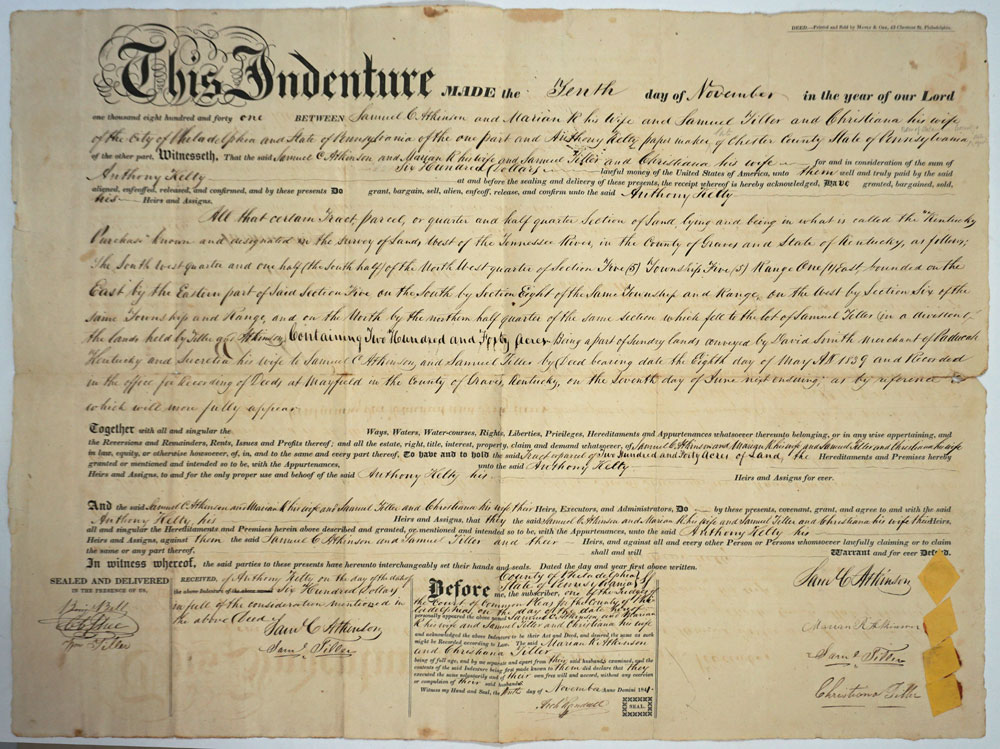 DEED.—Printed and Sold by
This Indenture MADE the Tenth day of November in the year of our Lord
one thousand eight hundred and forty one BETWEEN Samuel C. Atkinson and Marian R his wife and Samuel Tiller and Christiana his wife
of the City of Philadelphia and State of Pennsylvania of the one part and Anthony Kelly paper maker of Chester County State of Pennsylvania
of the other part, Witnesseth, That the said Samuel C Atkinson and Marian R his wife and Samuel Tiller and Christiana his wife for and in consideration of the sum of
Six Hundred Dollars lawful money of the United States of America, unto them well and truly paid by the said
Anthony Kelly at and before the sealing and delivery of these presents, the receipt whereof is hereby acknowledged, HAVE granted, bargained, sold,
aliened, enfeoffed, released, and confirmed, and by these presents Do grant, bargain, sell, alien, enfeoff, release, and confirm unto the said Anthony Kelly
his Heirs and Assigns.
All that certain Tract parcel, or quarter and half quarter Section of Land lying and being in what is called the "Kentucky
Purchase" known and designated in the survey of Lands West of the Tennessee River, in the County of Graves and State of Kentucky, as follows;
The South West quarter and one half (the South half) of the North West quarter of Section Five (5) Township Five (5) Range One (1) East, bounded on the
East by the Eastern part of Said Section Five on the South by Section Eight of the Same Township and Range, on the West by Section Six of the
same Township and Range, and on the North by the northern half quarter of the same section which fell to the lot of Samuel Tiller (in a division of
the lands held by Tiller and Atkinson) Containing Two Hundred and Forty Acres Being a part of Sundry Lands conveyed by David Smith Merchant of Paducah
Kentucky and Sucretia his wife to Samuel C Atkinson and Samuel Tiller by Deed bearing date the Eighth day of May AD 1839 and Recorded
in the office for Recording of Deeds at Mayfield in the County of Graves, Kentucky, on the Seventh day of June next ensuing; as by reference
which will more fully appear
Together with all and singular the Ways, Waters, Water-courses, Rights, Liberties, Privileges, Hereditaments and Appurtenances whatsoever thereunto belonging, or in any wise appertaining, and
the Reversions and Remainders, Rents, Issues and Profits thereof; and all the estate, right, title, interest, property, claim and demand whatsoever, of Samuel C. Atkinson and Marian R his wife and Samuel Tiller and Christiana his wife
in law, equity, or otherwise howsoever, of, in, and to the same and every part thereof, To have and to hold the said Tract or parcel of Two Hundred and Forty Acres of Land, the Hereditaments and Premises hereby
granted or mentioned and intended so to be, with the Appurtenances, unto the said Anthony Kelly his
Heirs and Assigns, to and for the only proper use and behoof of the said Anthony Kelly his Heirs and Assigns for ever.
And the said Samuel C Atkinson and Marian R his wife and Samuel Tiller and Christiana his wife their Heirs, Executors, and Administrators, Do by these presents, covenant, grant, and agree to and with the said
Anthony Kelly his Heirs and Assigns, that they the said Samuel C Atkinson and Marian R his wife and Samuel Tiller and Christiana his wife their Heirs,
all and singular the Hereditaments and Premises herein above described and granted, or mentioned and intended so to be, with the Appurtenances, unto the said Anthony Kelly his
Heirs and Assigns, against them the said Samuel C Atkinson and Samuel Tiller and their Heirs, and against all and every other Person or Persons whomsoever lawfully claiming or to claim
the same or any part thereof, shall and will Warrant and for ever Defend.
In witness whereof, the said parties to these presents have hereunto interchangeably set their hands and seals. Dated the day and year first above written.
SEALED AND DELIVERED
IN THE PRESENCE OF US,
Tiller
RECEIVED, of Anthony Kelly on the day of the date of
the above Indenture of the above named Six Hundred Dollars
in full of the consideration mentioned in
the above Deed
Saml C Atkinson
Saml Tiller
County of Philadelphia
State of Pennsylvania
Before me, the subscriber, one of the Judges of
the Court of Common Pleas for the County of Phi
ladelphia, on the day of the date hereof
personally appeared the above named Samuel C. Atkinson, and Marian
R his wife and Samuel Tiller and Christiana his wife
and acknowledged the above Indenture to be their Act and Deed, and desired the same as such
might be Recorded according to Law. The said Marian R Atkinson
and Christiana Tiller
being of full age, and by me separate and apart from their said husbands examined, and the
contents of the said Indenture being first made known to them did declare that they
executed the same voluntarily and of their own free will and accord, without any coercion
or compulsion of their said husbands
Witness my Hand and Seal, the tenth day of November Anno Domini 1841
SEAL.
Saml C Atkinson
Marian R Atkinson
Saml Tiller
Christiana Tiller